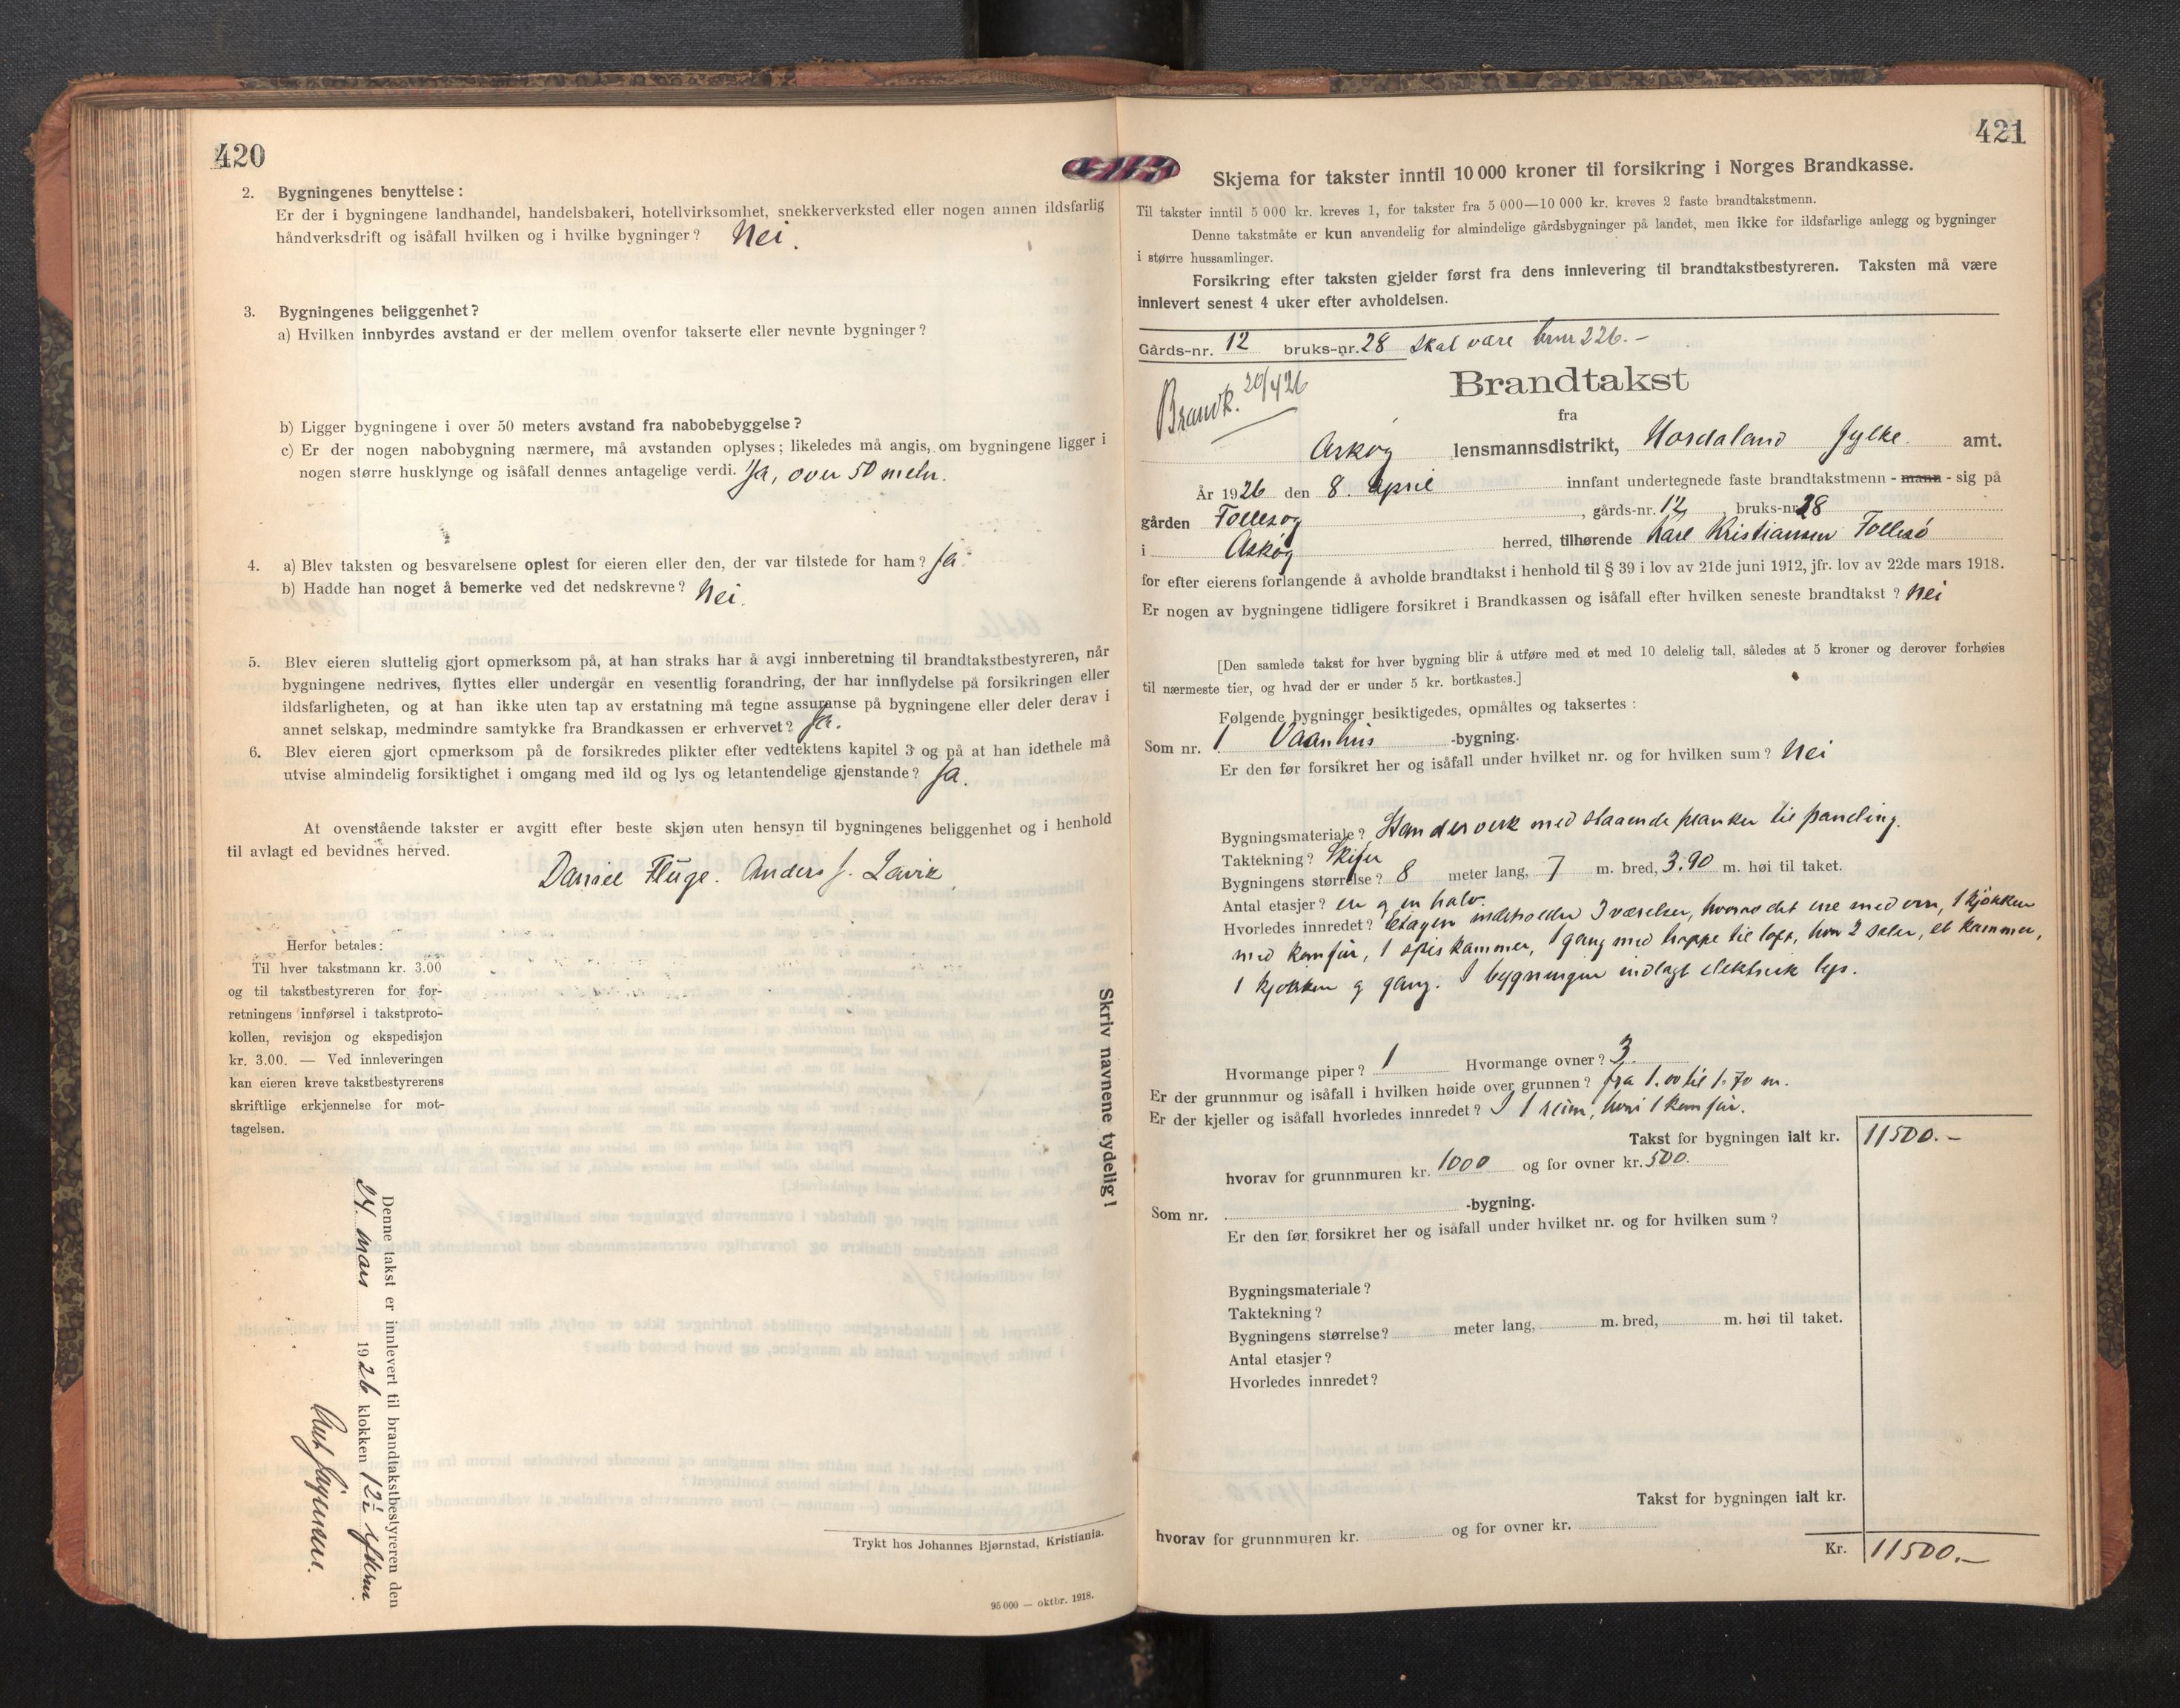 420
2. Bygningenes benyttelse:
Er der i bygningene landhandel, handelsbakeri, hotellvirksomhet, snekkerverksted eller nogen annen ildsfarlig
håndverksdrift og isåfall hvilken og i hvilke bygninger? Nei.
3. Bygningenes beliggenhet?
a) Hvilken innbyrdes avstand er der mellem ovenfor takserte eller nevnte bygninger?
b) Ligger bygningene i over 50 meters avstand fra nabobebyggelse?
c) Er der nogen nabobygning nærmere, må avstanden oplyses; likeledes må angis, om bygningene ligger i
nogen større husklynge og isåfall dennes antagelige verdi. Ja, over 50 meter.
4. a) Blev taksten og besvarelsene oplest for eieren eller den, der var tilstede for ham? Ja.
b) Hadde han noget å bemerke ved det nedskrevne? Nei.
5. Blev eieren sluttelig gjort opmerksom på, at han straks har å avgi innberetning til brandtakstbestyreren, når
bygningene nedrives, flyttes eller undergår en vesentlig forandring, der har innflydelse på forsikringen eller
ildsfarligheten, og at han ikke uten tap av erstatning må tegne assuranse på bygningene eller deler derav i
annet selskap, medmindre samtykke fra Brandkassen er erhvervet? Ja.
6. Blev eieren gjort opmerksom på de forsikredes plikter efter vedtektens kapitel 3 og på at han idethele må
utvise almindelig forsiktighet i omgang med ild og lys og letantendelige gjenstande? Ja.
At ovenstående takster er avgitt efter beste skjøn uten hensyn til bygningenes beliggenhet og i henhold
til avlagt ed bevidnes herved.
Daniel Fluge. Anders J. Lavik
Herfor betales:
Til hver takstmann kr. 3.00
og til takstbestyreren for for-
retningens innførsel i takstproto-
kollen, revisjon og ekspedisjon
kr. 3.00. — Ved innleveringen
kan eieren kreve takstbestyrerens
skriftlige erkjennelse for mot-
tagelsen.
Denne takst er innlevert til brandtakstbestyreren den
24. mars 1926 klokken 12½ efterm.
Skriv navnene tydelig!
Trykt hos Johannes Bjørnstad, Kristiania.
95 000 — oktbr. 1918.
421
Skjema for takster inntil 10 000 kroner til forsikring i Norges Brandkasse.
Til takster inntil 5 000 kr. kreves 1, for takster fra 5 000—10 000 kr. kreves 2 faste brandtakstmenn.
Denne takstmåte er kun anvendelig for almindelige gårdsbygninger på landet, men ikke for ildsfarlige anlegg og bygninger
i større hussamlinger.
Forsikring efter taksten gjelder først fra dens innlevering til brandtakstbestyreren. Taksten må være
innlevert senest 4 uker efter avholdelsen.
Gårds-nr. 12 bruks-nr. 28 skal være brnr 226.-
Brandk. 20/4 26
Brandtakst
fra
Askøy lensmannsdistrikt, Hordaland fylke. amt.
År 1926 den 8. April innfant undertegnede faste brandtakstmenn - mann - sig på
gården Follesøy, gårds-nr. 12, bruks-nr. 28
i Askøy herred, tilhørende Karl Kristiansen Follesø
for efter eierens forlangende å avholde brandtakst i henhold til § 39 i lov av 21de juni 1912, jfr. lov av 22de mars 1918.
Er nogen av bygningene tidligere forsikret i Brandkassen og isåfall efter hvilken seneste brandtakst? Nei
[Den samlede takst for hver bygning blir å utføre med et med 10 delelig tall, således at 5 kroner og derover forhøies
til nærmeste tier, og hvad der er under 5 kr. bortkastes.]
Følgende bygninger besiktigedes, opmåltes og taksertes:
Som nr. 1 Vaanhus -bygning.
Er den før forsikret her og isåfall under hvilket nr. og for hvilken sum? Nei
Bygningsmateriale? Standerverk med staaende planker til paneling.
Taktekning? Skifer
Bygningens størrelse? 8 meter lang, 7 m. bred, 3.90 m. høi til taket.
Antal etasjer? en og en halv.
Hvorledes innredet? Etagen indeholder 3 værelser, hvorav det ene med ovn, 1 kjøkken
med komfur, 1 spiskammer, 1 gang med trappe til loft, hvor 2 saler, et kammer,
1 kjøkken og gang. I bygningen indlagt elektrisk lys.
Hvormange piper? 1 Hvormange ovner? 3.
Er der grunnmur og isåfall i hvilken høide over grunnen? fra 1.00 til 1.70 m.
Er der kjeller og isåfall hvorledes innredet? I 1 reim, hvori 1 komfur.
Takst for bygningen ialt kr. 11500.-
hvorav for grunnmuren kr. 1000 og for ovner kr. 500.
Som nr. -bygning.
Er den før forsikret her og isåfall under hvilket nr. og for hvilken sum?
Bygningsmateriale?
Taktekning?
Bygningens størrelse? meter lang, m. bred, m. høi til taket.
Antal etasjer?
Hvorledes innredet?
Takst for bygningen ialt kr.
hvorav for grunnmuren kr. og for ovner kr.
Kr. 11500.-